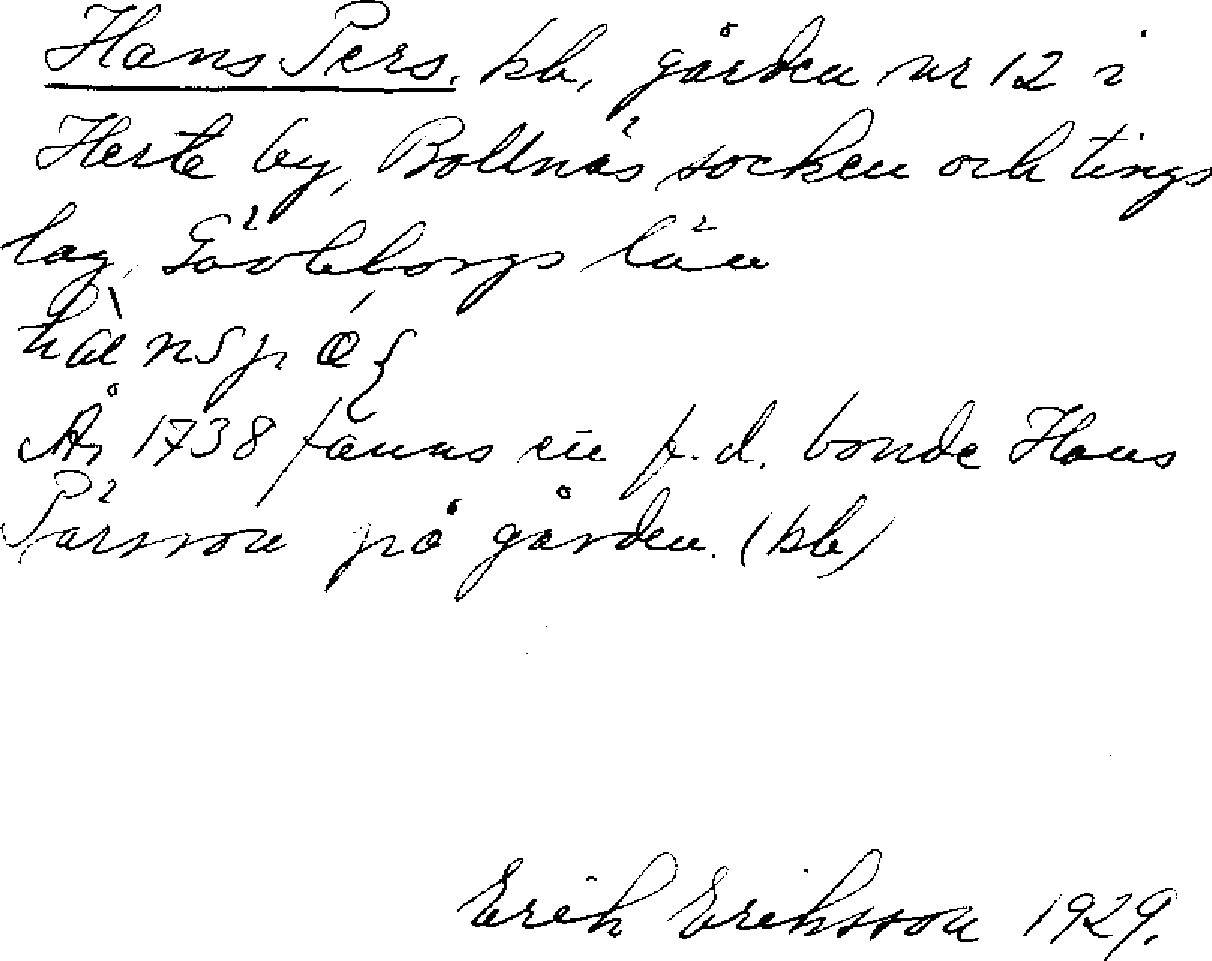 Hans Pers. kb, gården nr 12 i
Herte by, Bollnäs socken och tings
lag, Gävleborgs län
År 1738 fanns en f.d. bonde Hans
Pärsson på gården. (kb)
Erik Eriksson 1929.